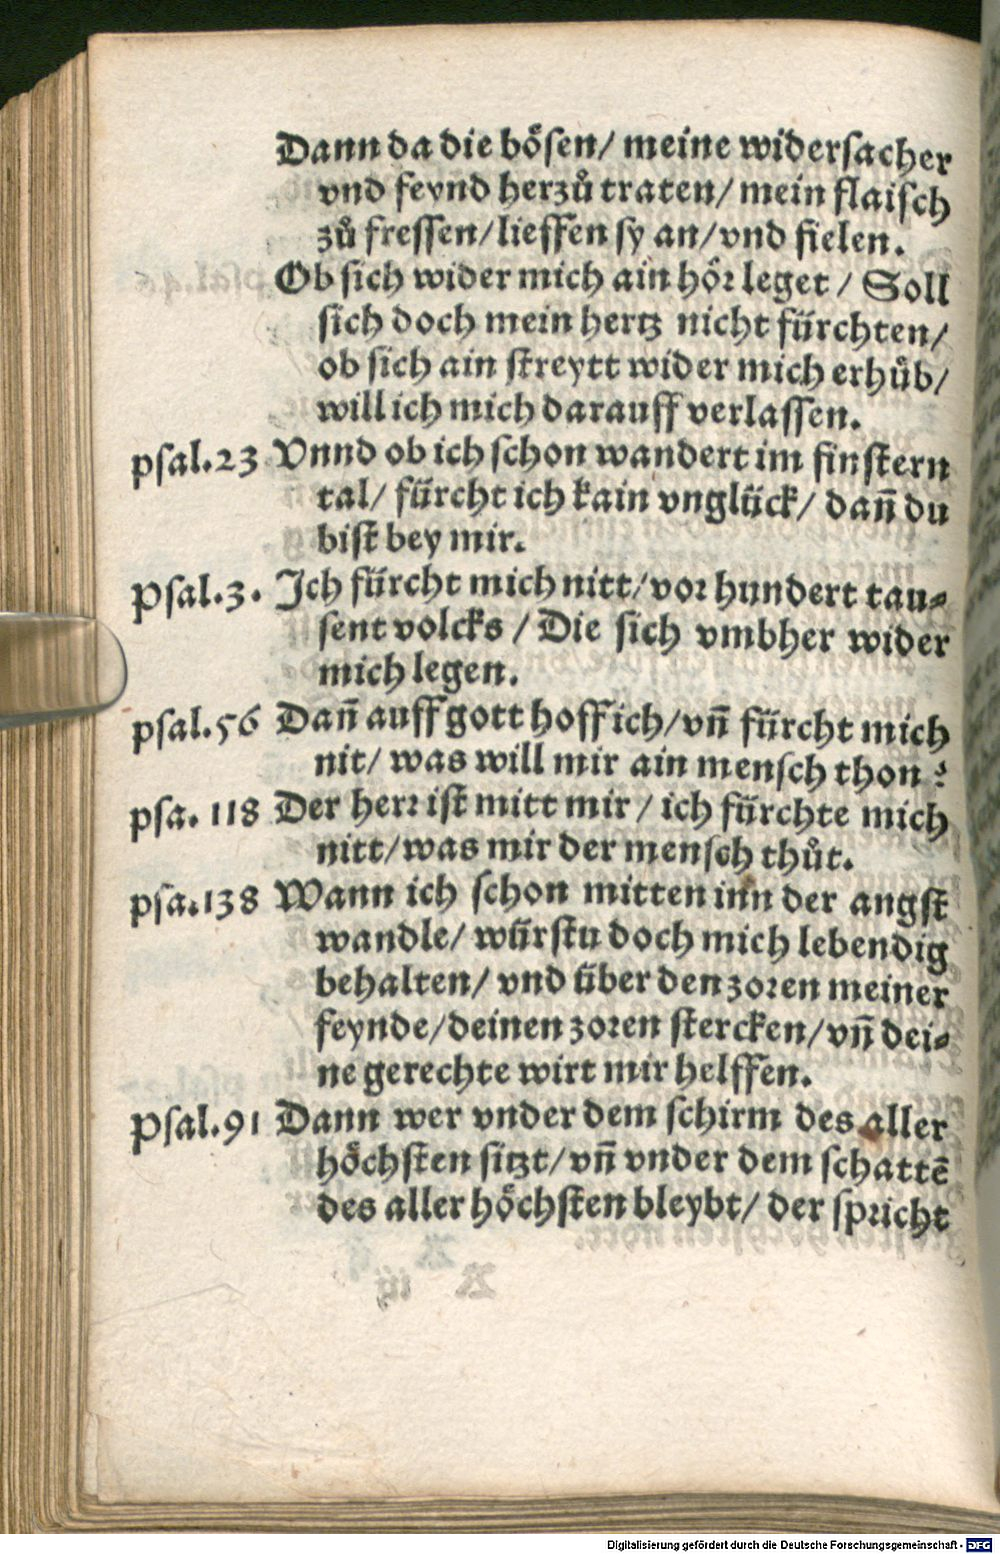 Dann da die boͤsen/ meine widersacher
vnd feynd herzuͦ traten/ mein flaisch
zuͦ fressen/lieffen sy an/vnd fielen.
Ob sich wider mich ain hoͤr leget / Soll
sich doch mein hertz nicht fürchten/
ob sich ain streytt wider mich erhuͦb/
will ich mich darauff verlassen.
psal.23 Vnnd ob ich schon wandert im finstern
tal/ fürcht ich kain vnglück/ dañ du
bist bey mir.
Psal.3. Ich fürcht mich nitt/vor hundert tau⸗
sent volcks / Die sich vmbher wider
mich legen.
psal.56 Dañ auff gott hoff ich/vñ fürcht mich
nit/ was will mir ain mensch thon ?
psa. 118 Der herr ist mitt mir / ich fürchte mich
nitt/was mir der mensch thuͦt.
psa.138 Wann ich schon mitten inn der angst
wandle/ würstu doch mich lebendig
behalten/ vnd über den zoren meiner
feynde/deinen zoren stercken/vñ dei⸗
ne gerechte wirt mir helffen.
Psal.91 Dann wer vnder dem schirm des aller
hoͤchsten sitzt/vñ vnder dem schattē
des aller hoͤchsten bleybt/ der spricht
Digitalisierung gefördert durch die Deutsche Forschungsgemeinschaft - DFG